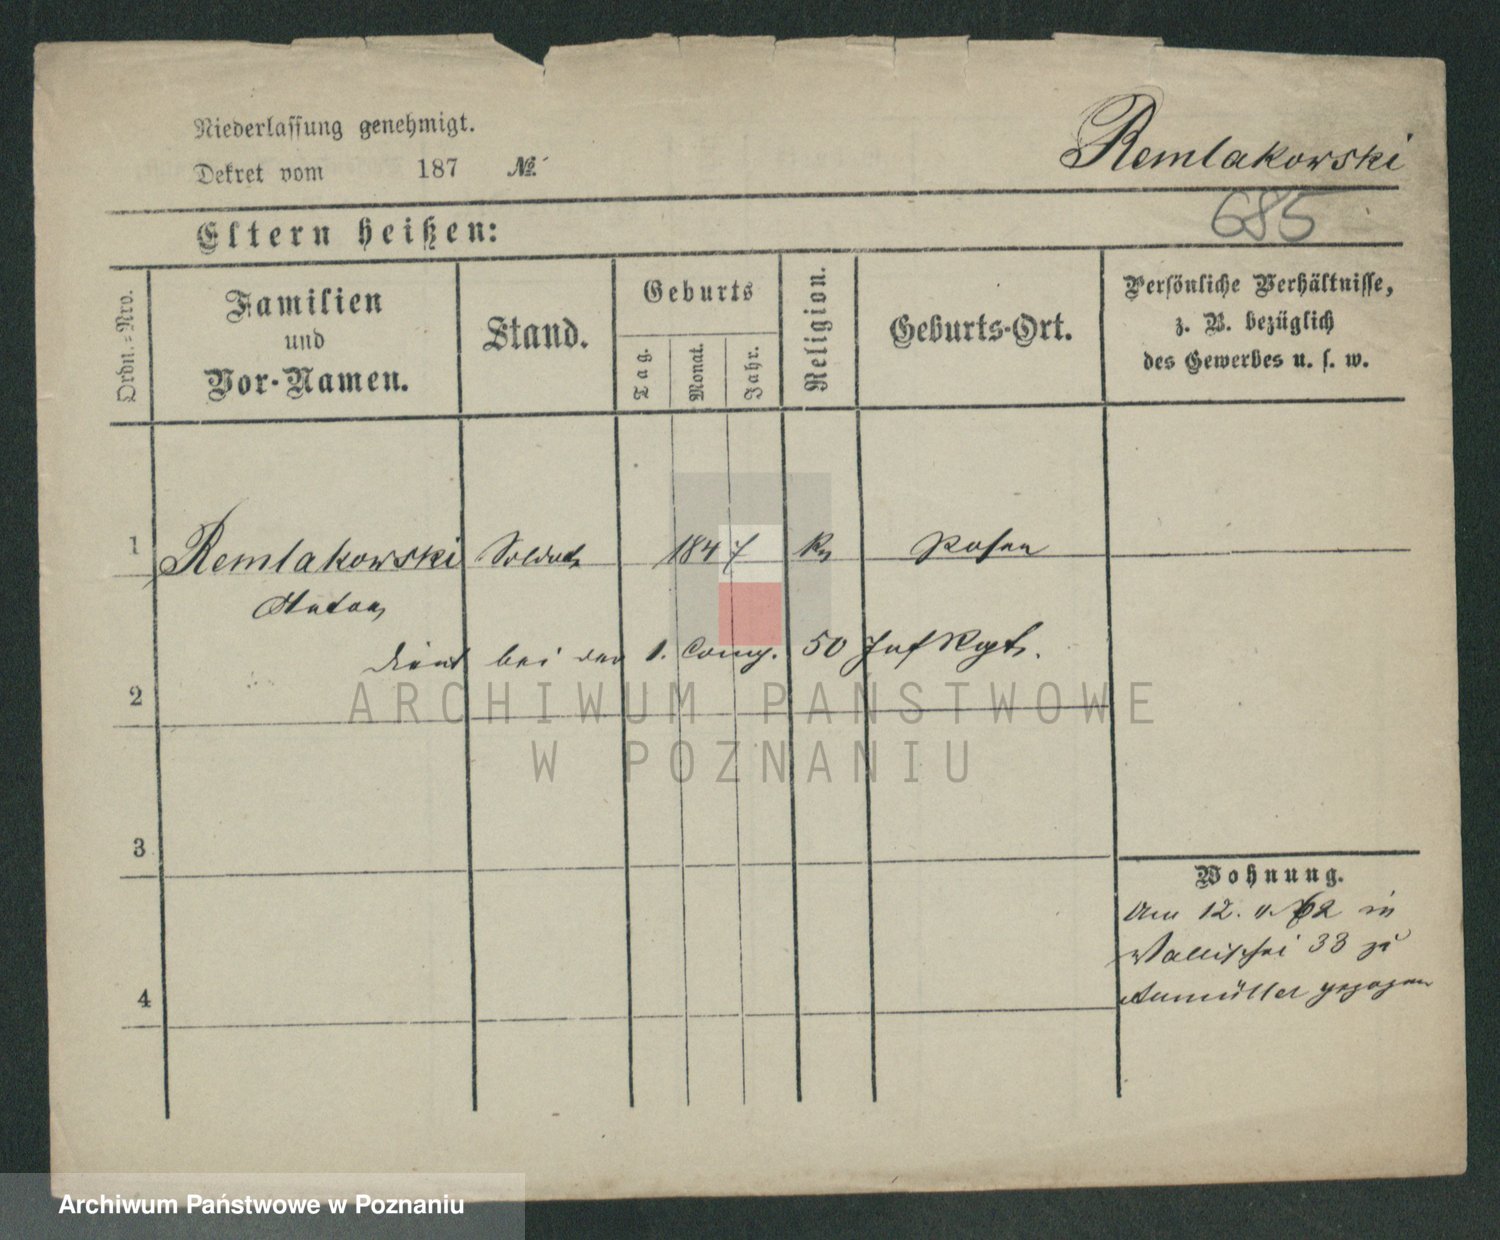 Niederlassung genehmigt.
Dekret vom 187 №
Remlakowski
685
Eltern heißen:
Ordn.-Nro.
Familien
und
Vor-Namen.
Stand.
Geburts
Tag.
Monat.
Jahr.
Religion.
Geburts-Ort.
Persönliche Verhältnisse,
z. B. bezüglich
des Gewerbes u. s. w.
1 Remlakowski Soldat 1847 Posen
Anton
dient bei der 1. Comp. 50 Inf Rgts.
2
ARCHIWUM PAŃSTWOWE
W POZNANIU
3
4
Wohnung.
Am 12. in
Wallischei 33 zu
gezogen
Archiwum Państwowe w Poznaniu